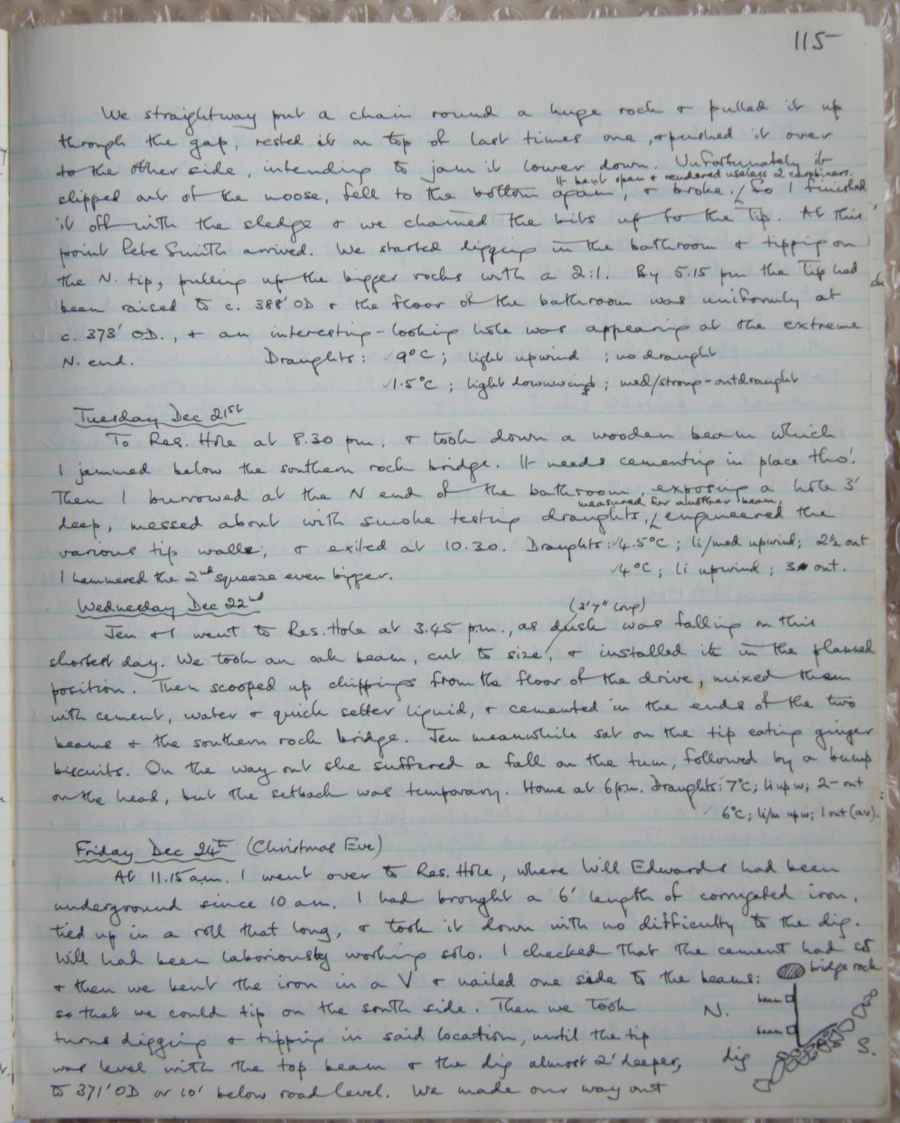 115
We straightway put a chain round a huge rock & pulled it up
through the gap, rested it on top of last times one, & pushed it over
to the other side, intending to jam it lower down. Unfortunately it
It bent open & rendered useless 2 carabiners.
slipped out of the noose, fell to the bottom again, & broke. So I finished
it off with the sledge & we chained the bits up to the Tip. At this
point Pete Smith arrived. We started digging in the bathroom & tipping on
the N. tip, pulling up the bigger rocks with a 2:1. By 5.15 pm the Tip had
been raised to c. 388' OD & the floor of the bathroom was uniformly at
c. 373' OD., & an interesting-looking hole was appearing at the extreme
N. end. Draughts: 9°C; light upwind; no draught
1.5°C; light downwind; med/strong-outdraught
Tuesday Dec 21st
To Res. Hole at 8.30 pm. & took down a wooden beam which
I jammed below the southern rock bridge. It needs cementing in place tho'.
Then I burrowed at the N end of the bathroom, exposing a hole 3'
measured for another beam,
deep, messed about with smoke testing draughts, engineered the
various tip walls, & exited at 10.30. Draughts: 4.5°C; li/med upwind; 2½ out
I hammered the 2nd squeeze even bigger. 4°C; li upwind; 3 out.
Wednesday Dec 22nd
(2'7" long)
Jen & I went to Res. Hole at 3.45 p.m., as dusk was falling on this
shortest day. We took an oak beam, cut to size, & installed it in the planned
position. Then scooped up chippings from the floor of the drive, mixed them
with cement, water & quick setter liquid, & cemented in the ends of the two
beams & the southern rock bridge. Jen meanwhile sat on the tip eating ginger
biscuits. On the way out she suffered a fall on the tum, followed by a bump
on the head, but the setback was temporary. Home at 6pm. Draughts: 7°C; li up w; 2- out
6°C; li/m up w; 1 out (av).
Friday Dec 24th (Christmas Eve)
At 11.15 a.m. I went over to Res. Hole, where Will Edwards had been
underground since 10 am. I had brought a 6' length of corrugated iron,
tied up in a roll that long, & took it down with no difficulty to the dig.
Will had been laboriously working solo. I checked that the cement had set
& then we bent the iron in a V & nailed one side to the beams: bridge rock
so that we could tip on the south side. Then we took N. beam
turns digging & tipping in said location, until the tip beam S.
was level with the top beam & the dig almost 2' deeper, dig
to 371' OD or 10' below road level. We made our way out